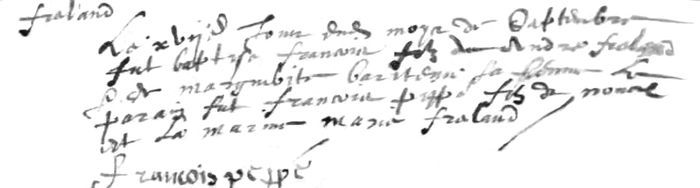 fraland
Le xviije Jour dud moys de Septembre
fut baptise francois filz de Andre fraland
& de margueritte
parain fut francois peppe filz de
et la marine marie fraland
francois peppe